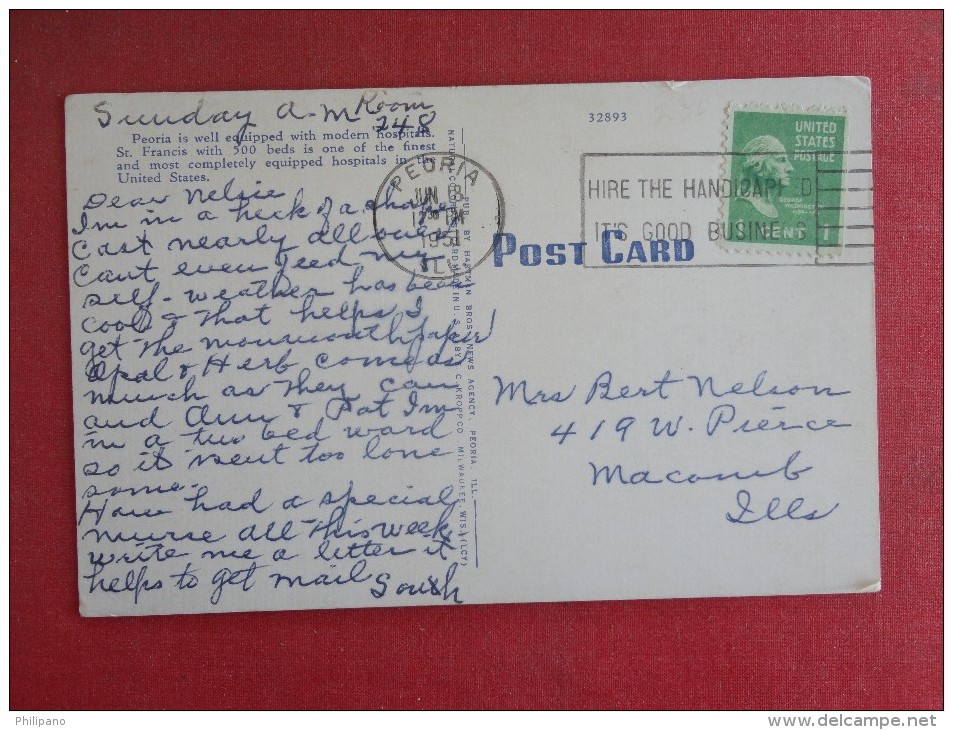 Sunday A-M Room
248
Peoria is well equipped with modern hospitals.
St. Francis with 500 beds is one of the finest
and most completely equipped hospitals in the
United States.
Dear Nelsie
Im in a heck of a shape
Cast nearly all over
Cant even feed my
self - weather has been
cool & that helps I
get the monmouth paper
Opal & Herb come as
much as they can
and Ann & Pat Im
in a two bed ward
so it isent too lone
some.
Have had a special
nurse all this week
write me a letter it
helps to get mail
32893
PEORIA
JUN 18
1951
ILL.
HIRE THE HANDICAPPED
IT'S GOOD BUSINESS
UNITED
STATES
POSTAGE
1 CENT 1
POST CARD
PUB. BY HARTMAN BROS. NEWS AGENCY, PEORIA, ILL.
MADE IN U. S. A. BY E. C. KROPP CO. MILWAUKEE, WIS. (LCY)
Mrs Bert Nelson
419 W. Pierce
Macomb
Ills
Philipano
www.delcampe.net